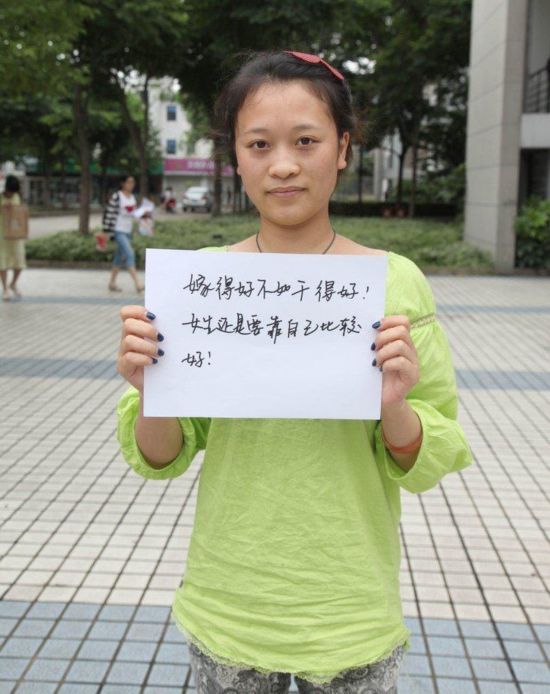 嫁得好不如干得好！
女生还是要靠自己比较
好！